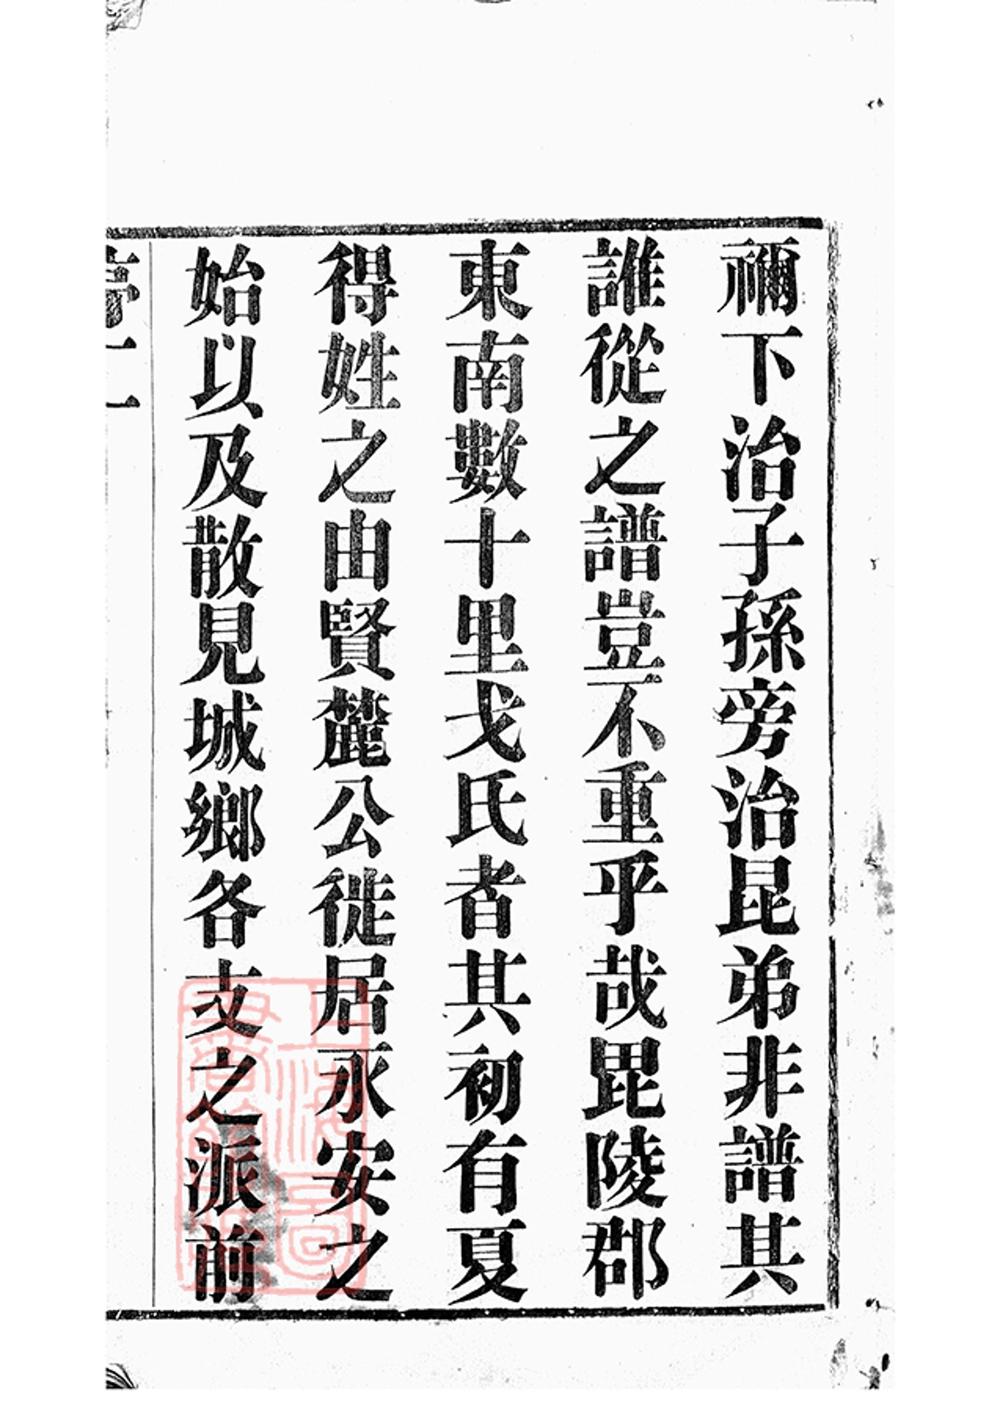 禰下治子孫旁治昆弟非譜其
誰從之譜豈不重乎哉毘陵郡
東南數十里戈氏者其初有夏
得姓之由賢麓公徙居永安之
始以及散見城鄉各支之派前
上海圖
書館藏